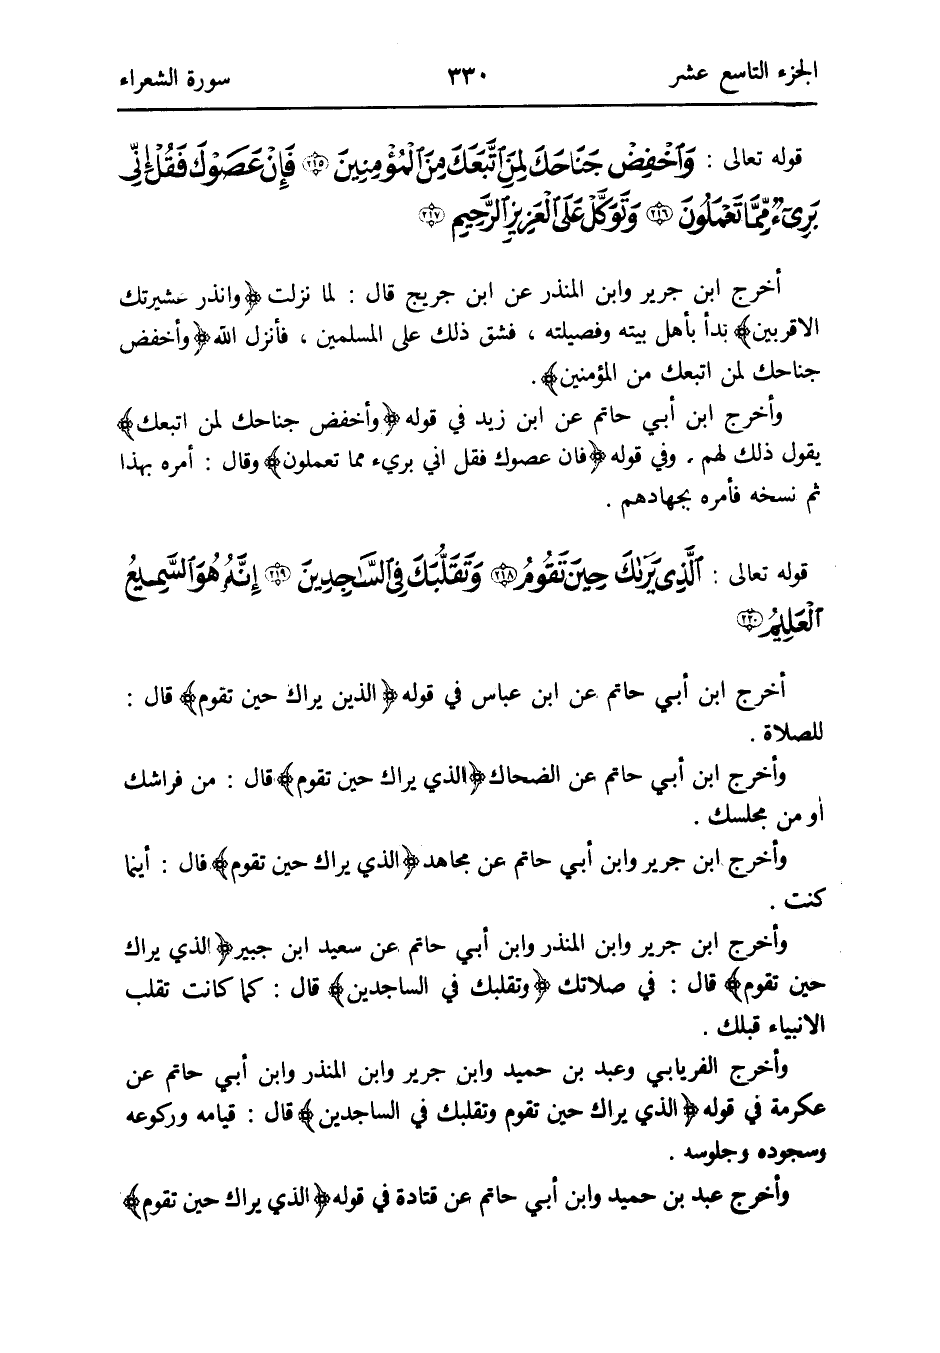 الجزء التاسع عشر ٣٣٠ سورة الشعراء
قوله تعالى : وَٱخۡفِضۡ جَنَاحَكَ لِمَنِ ٱتَّبَعَكَ مِنَ ٱلۡمُؤۡمِنِينَ ﴿٢١٥﴾ فَإِنۡ عَصَوۡكَ فَقُلۡ إِنِّي
بَرِيٓءٞ مِّمَّا تَعۡمَلُونَ ﴿٢١٦﴾ وَتَوَكَّلۡ عَلَى ٱلۡعَزِيزِ ٱلرَّحِيمِ ﴿٢١٧﴾
أخرج ابن جرير وابن المنذر عن ابن جريج قال : لما نزلت ﴿وانذر عشيرتك
الاقربين﴾ بدأ بأهل بيته وفصيلته ، فشق ذلك على المسلمين ، فأنزل الله ﴿وأخفض
جناحك لمن اتبعك من المؤمنين﴾.
وأخرج ابن أبي حاتم عن ابن زيد في قوله ﴿وأخفض جناحك لمن اتبعك﴾
يقول ذلك لهم . وفي قوله ﴿فان عصوك فقل اني بريء مما تعملون﴾ وقال : أمره بهذا
ثم نسخه فأمره بجهادهم .
قوله تعالى : ٱلَّذِي يَرَىٰكَ حِينَ تَقُومُ ﴿٢١٨﴾ وَتَقَلُّبَكَ فِي ٱلسَّٰجِدِينَ ﴿٢١٩﴾ إِنَّهُۥ هُوَ ٱلسَّمِيعُ
ٱلۡعَلِيمُ ﴿٢٢٠﴾
أخرج ابن أبي حاتم عن ابن عباس في قوله ﴿الذين يراك حين تقوم﴾ قال :
للصلاة .
وأخرج ابن أبي حاتم عن الضحاك ﴿الذي يراك حين تقوم﴾ قال : من فراشك
أو من مجلسك .
وأخرج ابن جرير وابن أبي حاتم عن مجاهد ﴿الذي يراك حين تقوم﴾ قال : أينما
كنت .
وأخرج ابن جرير وابن المنذر وابن أبي حاتم عن سعيد ابن جبير ﴿الذي يراك
حين تقوم﴾ قال : في صلاتك ﴿وتقلبك في الساجدين﴾ قال : كما كانت تقلب
الانبياء قبلك .
وأخرج الفريابي وعبد بن حميد وابن جرير وابن المنذر وابن أبي حاتم عن
عكرمة في قوله ﴿الذي يراك حين تقوم وتقلبك في الساجدين﴾ قال : قيامه وركوعه
وسجوده وجلوسه .
وأخرج عبد بن حميد وابن أبي حاتم عن قتادة في قوله ﴿الذي يراك حين تقوم﴾